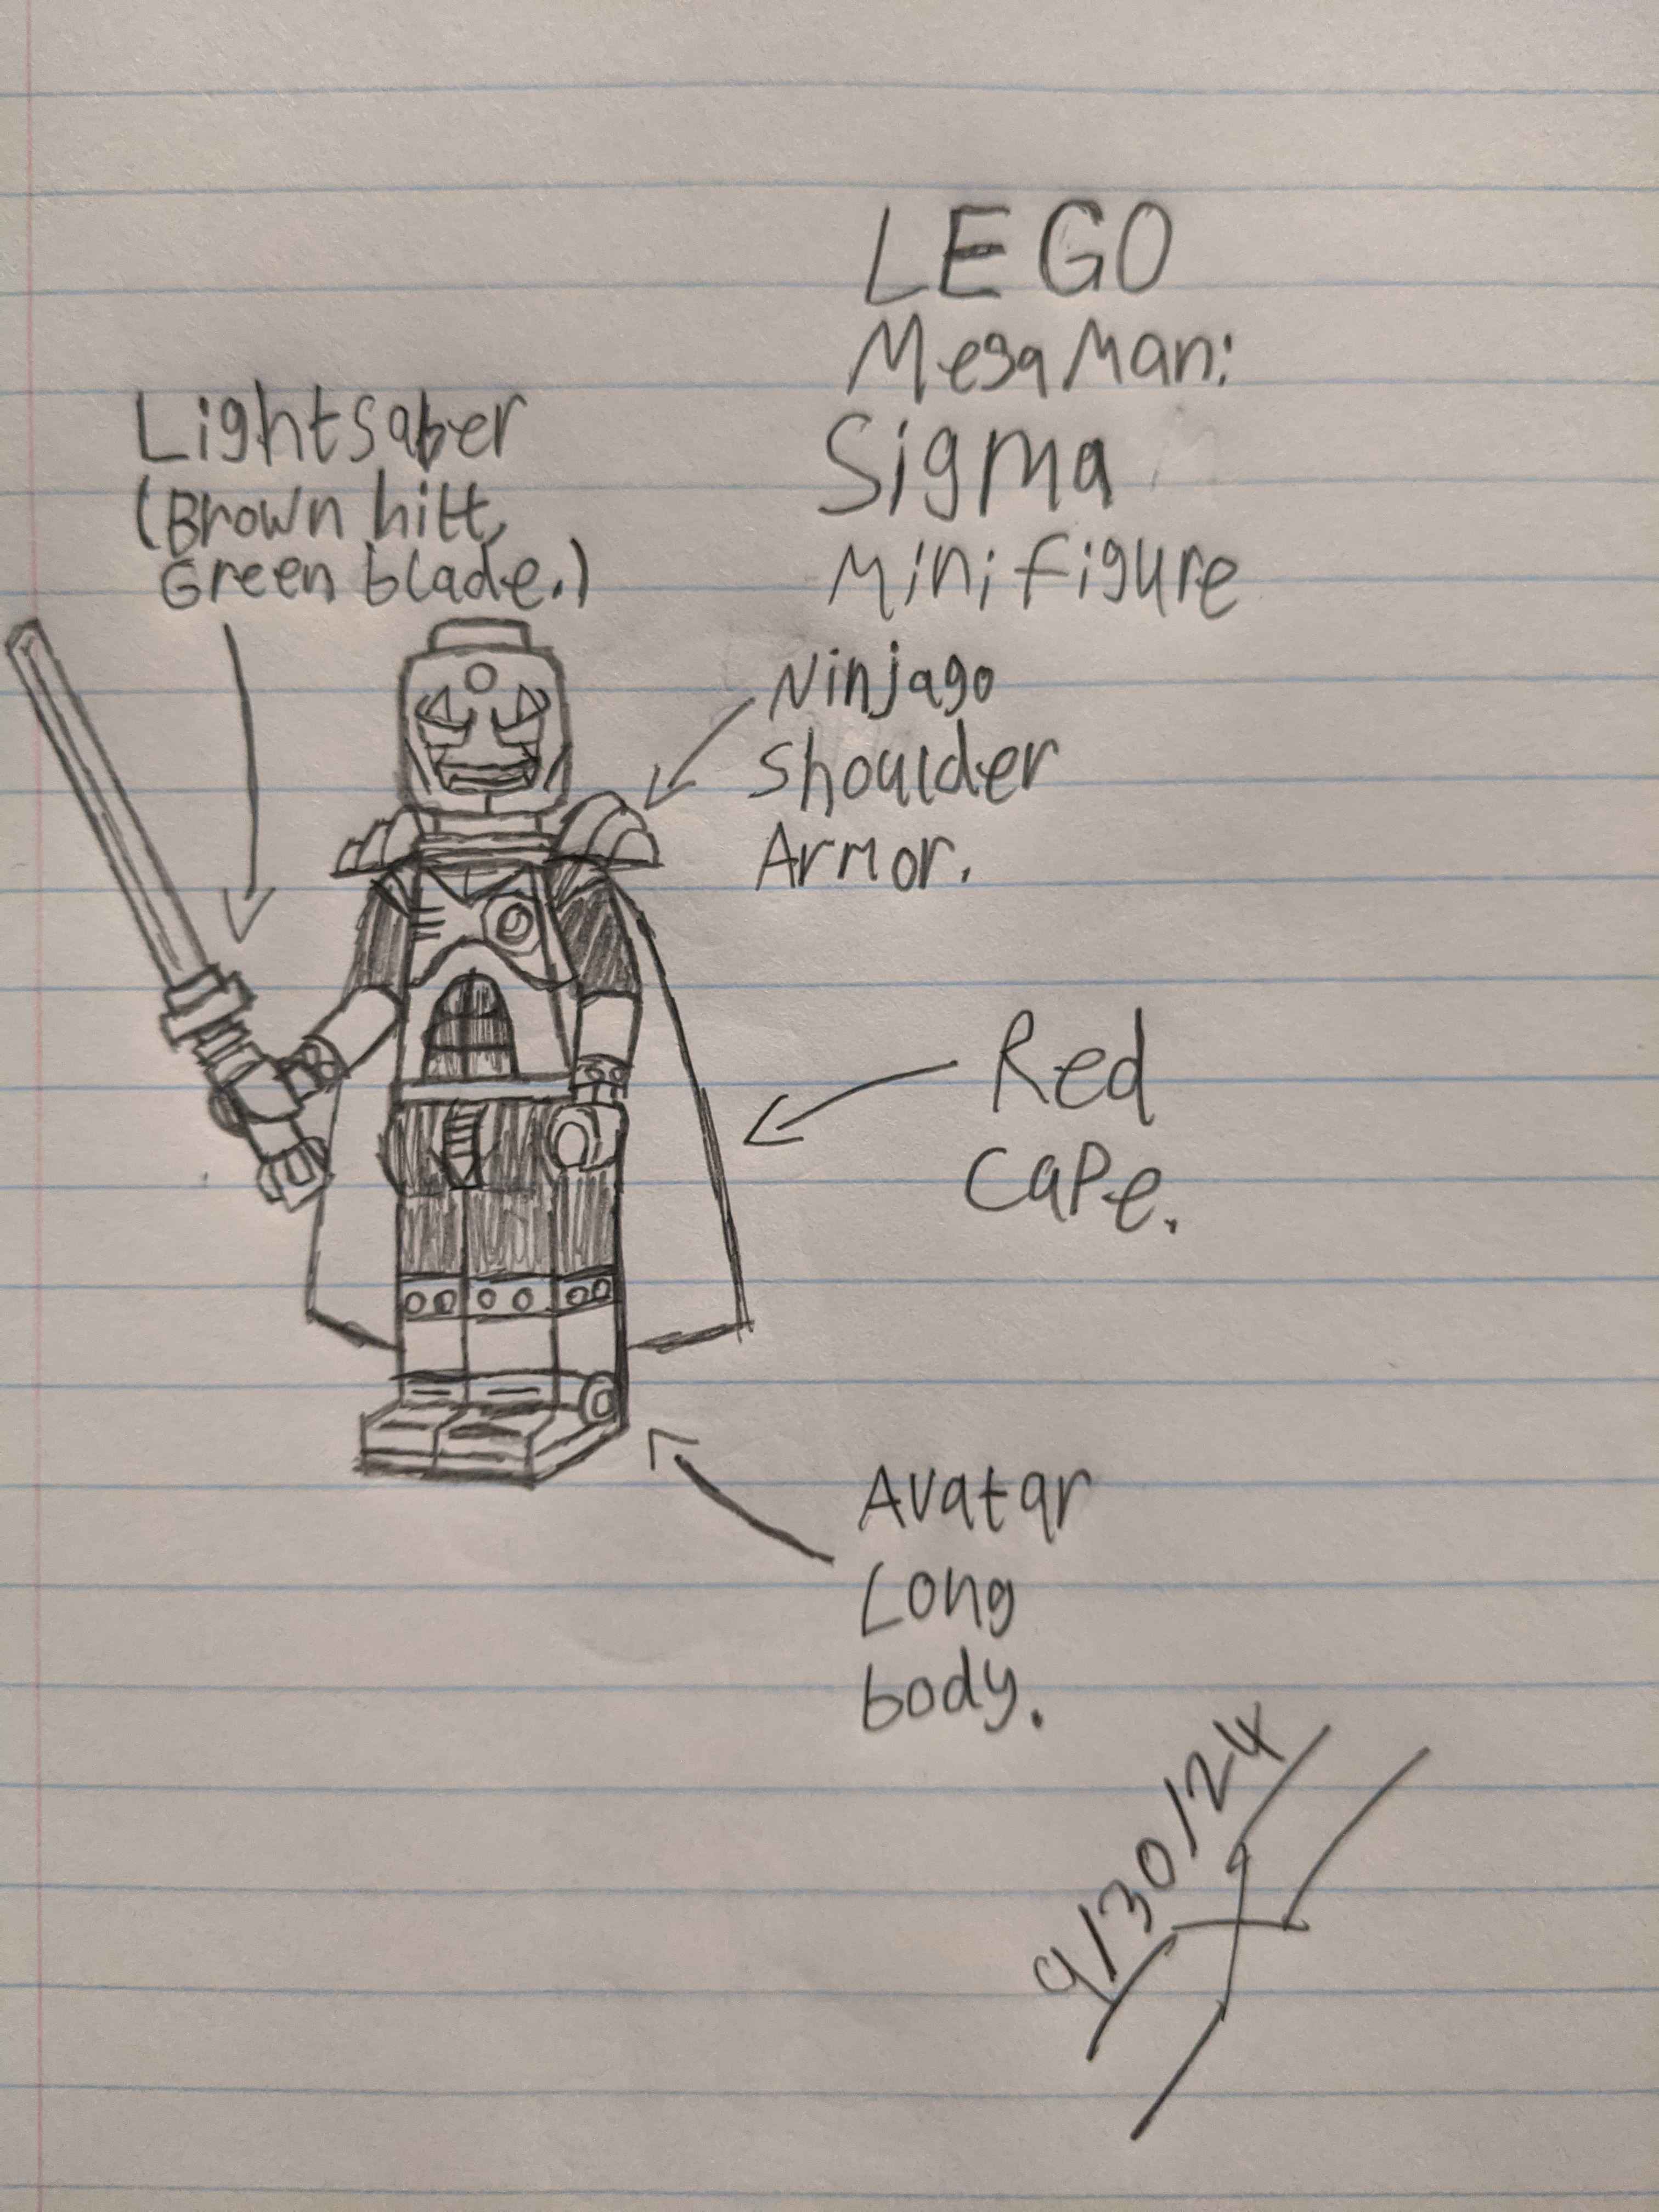 LEGO
MegaMan:
Sigma
Minifigure
Lightsaber
(Brown hilt,
Green blade.)
Ninjago
Shoulder
Armor.
Red
Cape.
Avatar
Long
body.
9/30/24